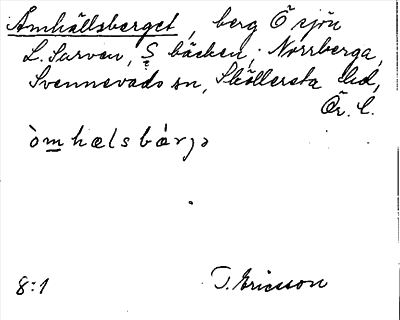 Åmhällsberget, berg Ö sjön
L. Sarven, S bäcken, Norrberga,
Svennevads sn, Sköllersta hd,
Ör. l.
òm hælsbárjə
8:1 T. Ericsson